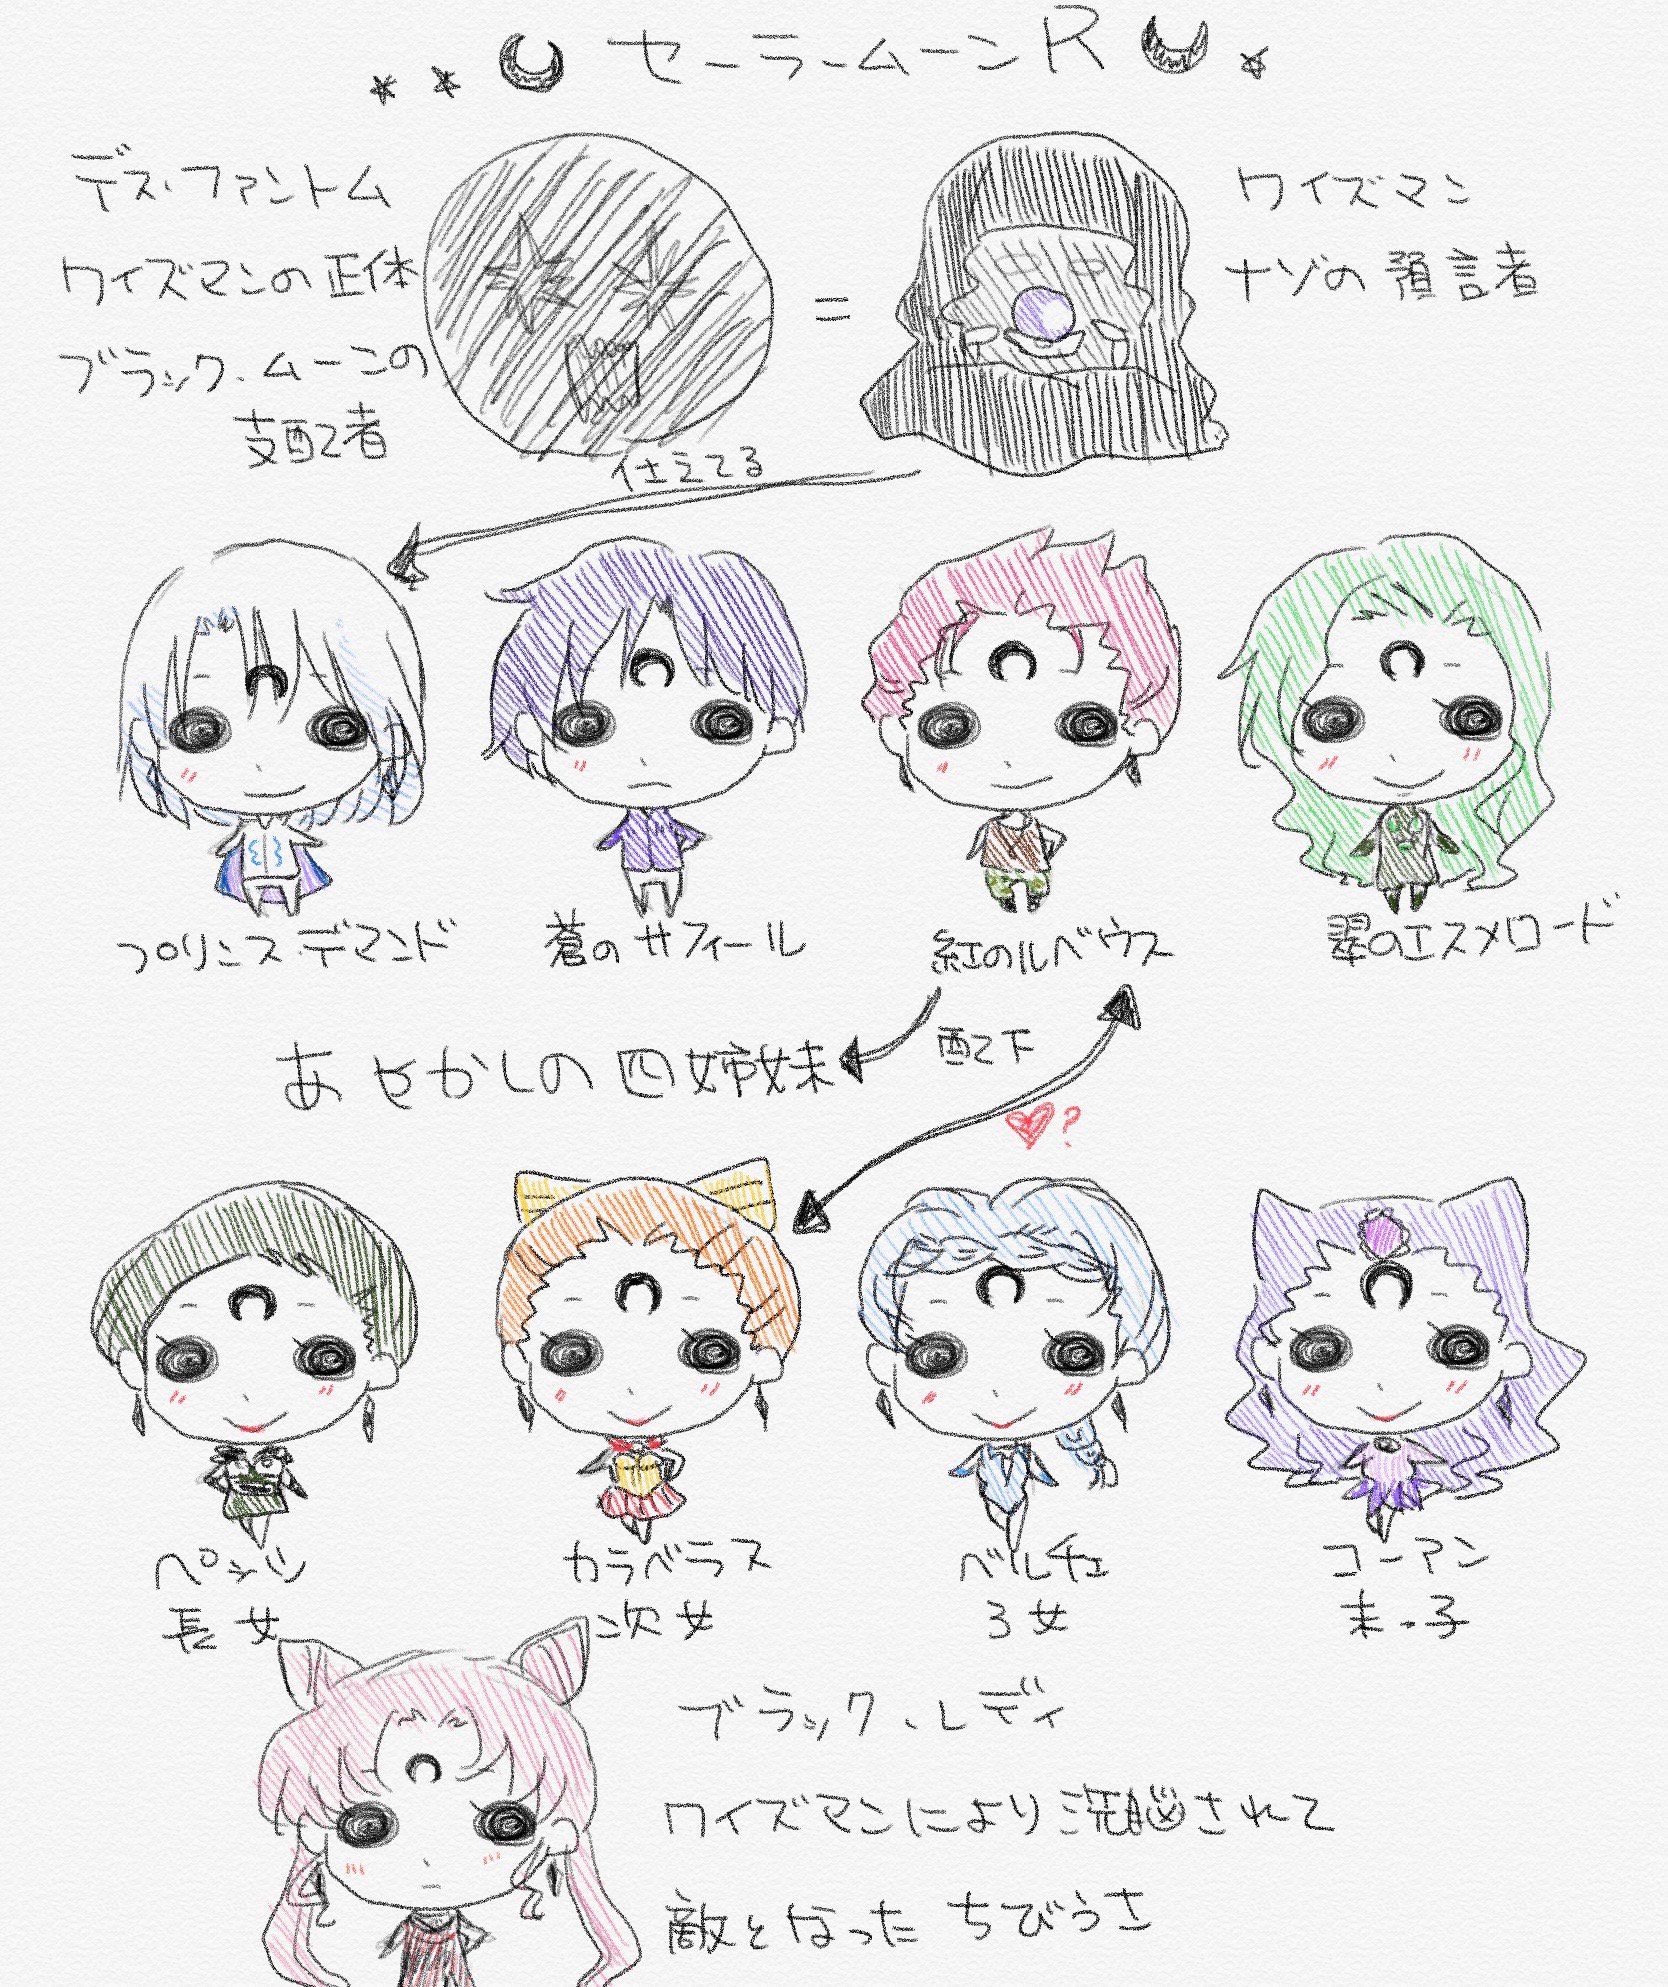 セーラームーンR
デス・ファントム
ワイズマンの正体
ブラック・ムーンの
支配者
=
ワイズマン
ナゾの預言者
仕えてる
プリンス・デマンド
蒼のサフィール
紅のルベウス
翠のエスメロード
あやかしの四姉妹
配下
?
ペッツ
長女
カラベラス
次女
ベルチェ
3女
コーアン
末っ子
ブラック・レディ
ワイズマンにより洗脳されて
敵となったちびうさ